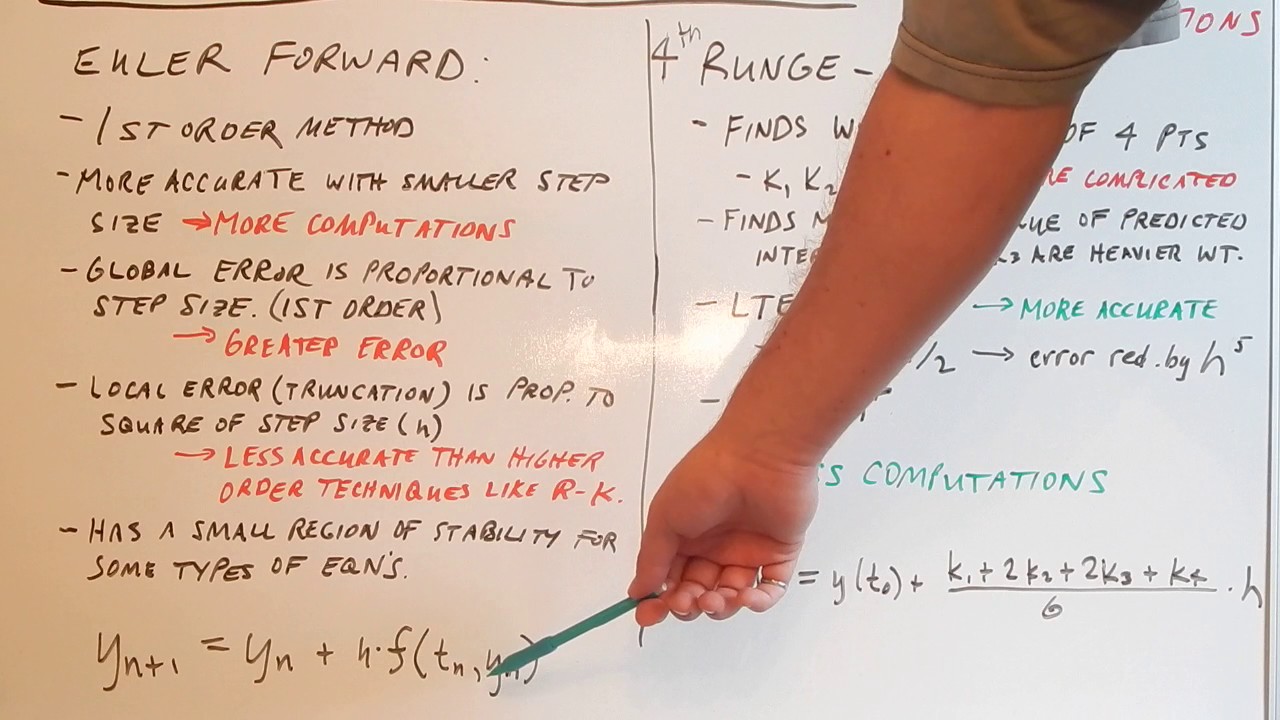 EULER FORWARD:
- 1ST ORDER METHOD
- MORE ACCURATE WITH SMALLER STEP
SIZE → MORE COMPUTATIONS
- GLOBAL ERROR IS PROPORTIONAL TO
STEP SIZE. (1ST ORDER)
→ GREATER ERROR
- LOCAL ERROR (TRUNCATION) IS PROP. TO
SQUARE OF STEP SIZE (h)
→ LESS ACCURATE THAN HIGHER
ORDER TECHNIQUES LIKE R-K.
- HAS A SMALL REGION OF STABILITY FOR
SOME TYPES OF EQN'S.
yₙ₊₁ = yₙ + h·f(tₙ, yₙ)
4th RUNGE -
- FINDS OF 4 PTS
- K₁ K₂ COMPLICATED
- FINDS OF PREDICTED
ARE HEAVIER WT.
- LTE → MORE ACCURATE
/2 → error red. by h⁵
COMPUTATIONS
= y(t₀) + (k₁ + 2k₂ + 2k₃ + k₄)/6 · h